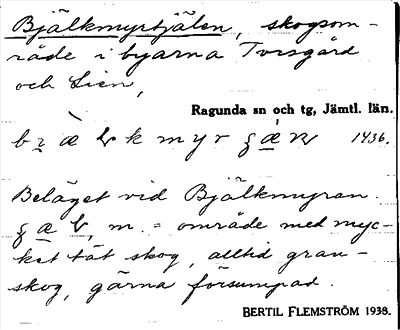 Bjälkmyrtjälen, skogsom-
råde i byarna Torsgård
och Lien,
Ragunda sn och tg, Jämtl. län.
1936.
Beläget vid Bjälkmyran.
m. = område med myc-
ket tät skog, alltid gran-
skog, gärna försumpad.
BERTIL FLEMSTRÖM 1938.